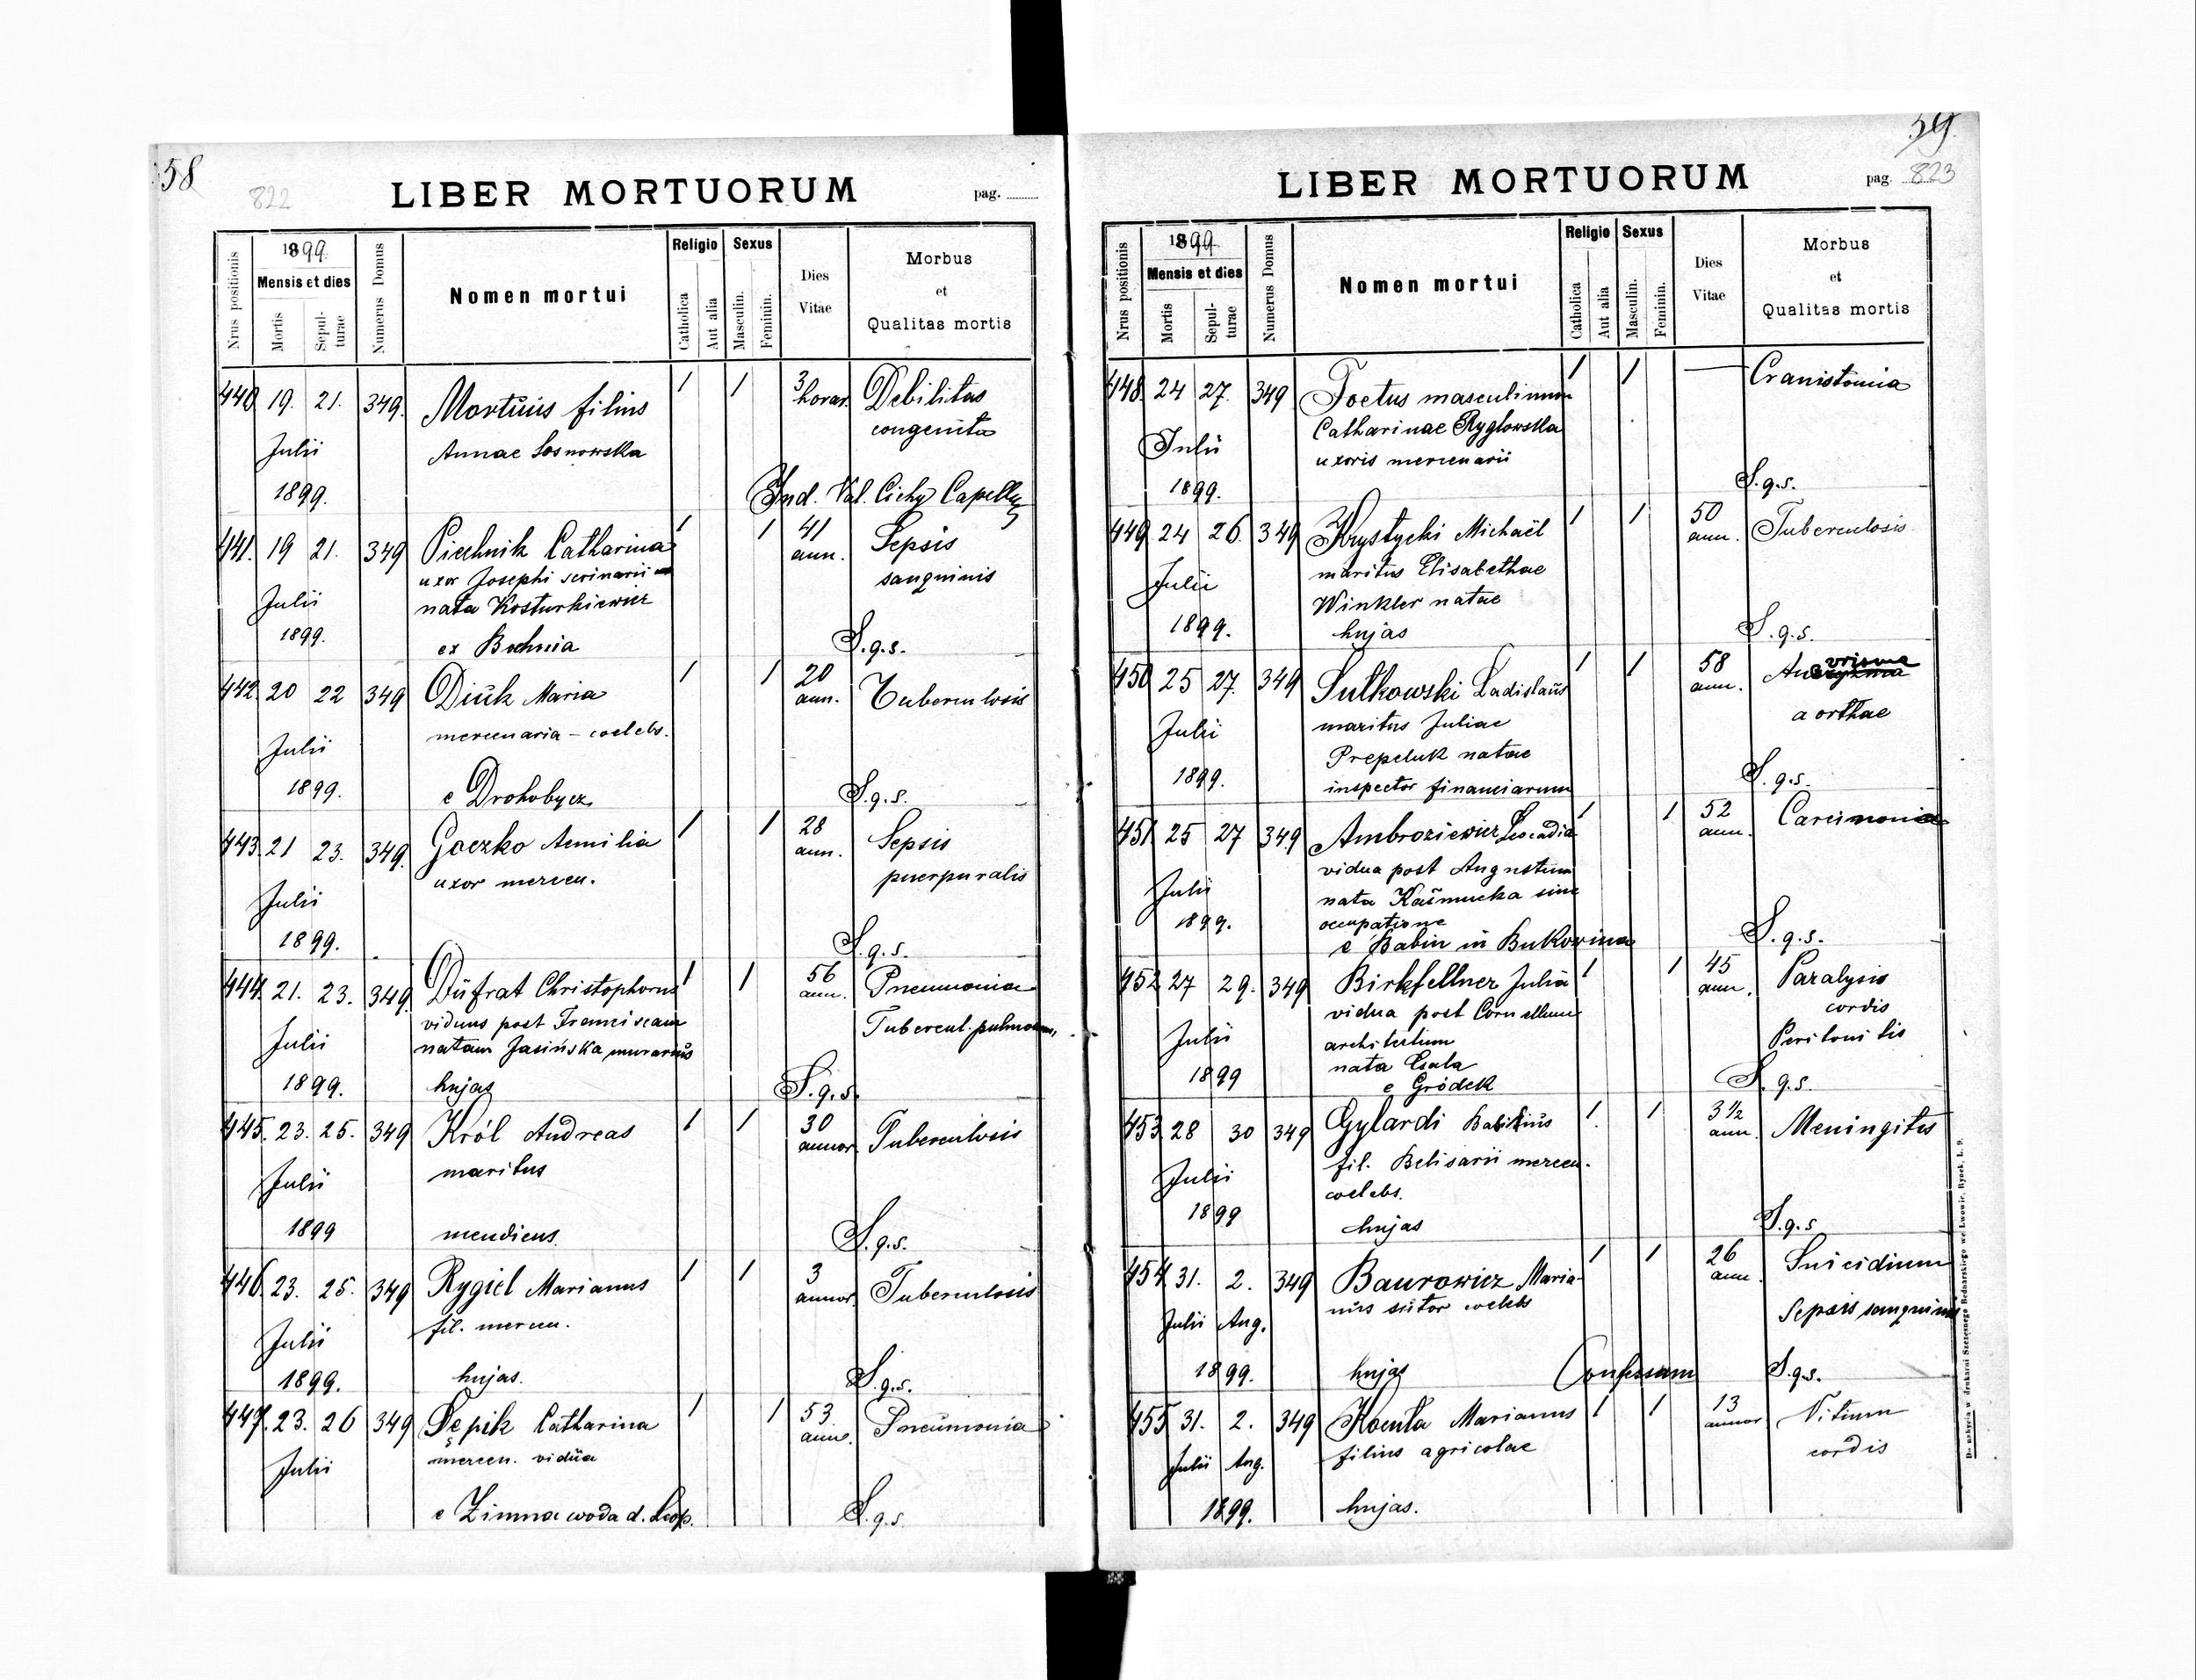 58
822
LIBER MORTUORUM
pag.
Nrus positionis
1899.
Mensis et dies
Mortis
Sepul-
turae
Numerus Domus
Nomen mortui
Religio
Catholica
Aut alia
Sexus
Masculin.
Feminin.
Dies
Vitae
Morbus
et
Qualitas mortis
440 19. 21. 349. Mortuus filius 1 1 3 horar. Debilitas
congenita
Julii Annae Sosnowska
1899. Ind. Val. Cichy Capell
441. 19 21. 349 Piechnik Catharina 1 1 41 ann. Sepsis
uxor Josephi scrinarii sanguinis
Julii nata Kosturkiewicz
1899. ex Bochnia S.q.s.
442. 20 22 349 Diuk Maria 1 1 20 ann. Tuberculosis
mercenaria – coelebs.
Julii
1899. e Drohobycz S.q.s.
443. 21 23. 349. Goczko Aemilia 1 1 28 ann. Sepsis
uxor mercen. puerpuralis
Julii
1899. S.q.s.
444. 21. 23. 349. Düfrat Christophorus 1 1 56 ann. Pneumonia
viduus post Franciscam Tubercul. pulmonum
Julii natam Jasińska murarius
1899. hujas S.q.s.
445. 23. 25. 349 Król Andreas 1 1 30 annor. Tuberculosis
maritus
Julii
1899 mendicus. S.q.s.
446. 23. 25. 349 Rygiel Marianus 1 1 3 annor. Tuberculosis
fil. mercen.
Julii
1899. hujas. S.q.s.
447. 23. 26 349 Sępik Catharina 1 1 53 ann. Pneumonia
mercen. vidua
Julii
e Zimna woda d. Leop. S.q.s.
59.
LIBER MORTUORUM
pag. 823
Nrus positionis
1899.
Mensis et dies
Mortis
Sepul-
turae
Numerus Domus
Nomen mortui
Religio
Catholica
Aut alia
Sexus
Masculin.
Feminin.
Dies
Vitae
Morbus
et
Qualitas mortis
448. 24 27. 349 Foetus masculinum 1 1 — Craniotomia
Catharinae Ryglowska
Julii uxoris mercenarii
1899. S.q.s.
449 24 26. 349 Krystycki Michaël 1 1 50 ann. Tuberculosis
maritus Elisabethae
Julii Winkler natae
1899. hujas S.q.s.
450 25 27. 349 Sulkowski Ladislaus 1 1 58 ann. Aneurisma
maritus Juliae aorthae
Julii Prepeluk natae
1899. inspector financiarum S.q.s.
451. 25 27 349 Ambroziewicz Leocadia 1 1 52 ann. Carcinonia
vidua post Augustum
Julii nata Kaśmucka sine
1899. occupatione
e Babin in Bukowina S.q.s.
452 27 29. 349 Birkfellner Julia 1 1 45 ann. Paralysis
vidua post Cornellum cordis
Julii architectum Peritonitis
nata Csala
1899 e Gródek S.q.s.
453 28 30 349 Gylardi 1 1 3 1/2 ann. Meningitis
fil. Belisarii mercen.
Julii coelebs.
1899 hujas S.q.s
454 31. 2. 349 Baurowicz Maria- 1 1 26 ann. Suicidium
nus sutor coelebs Sepsis sanguinis
Julii Aug.
1899. hujas Confessum S.q.s.
455 31. 2. 349 Kocuła Marianus 1 1 13 annor. Vitium
filius agricolae cordis
Julii Aug.
1899. hujas.
Do nabycia w drukarni Szczęsnego Bednarskiego we Lwowie, Rynek, L. 9.